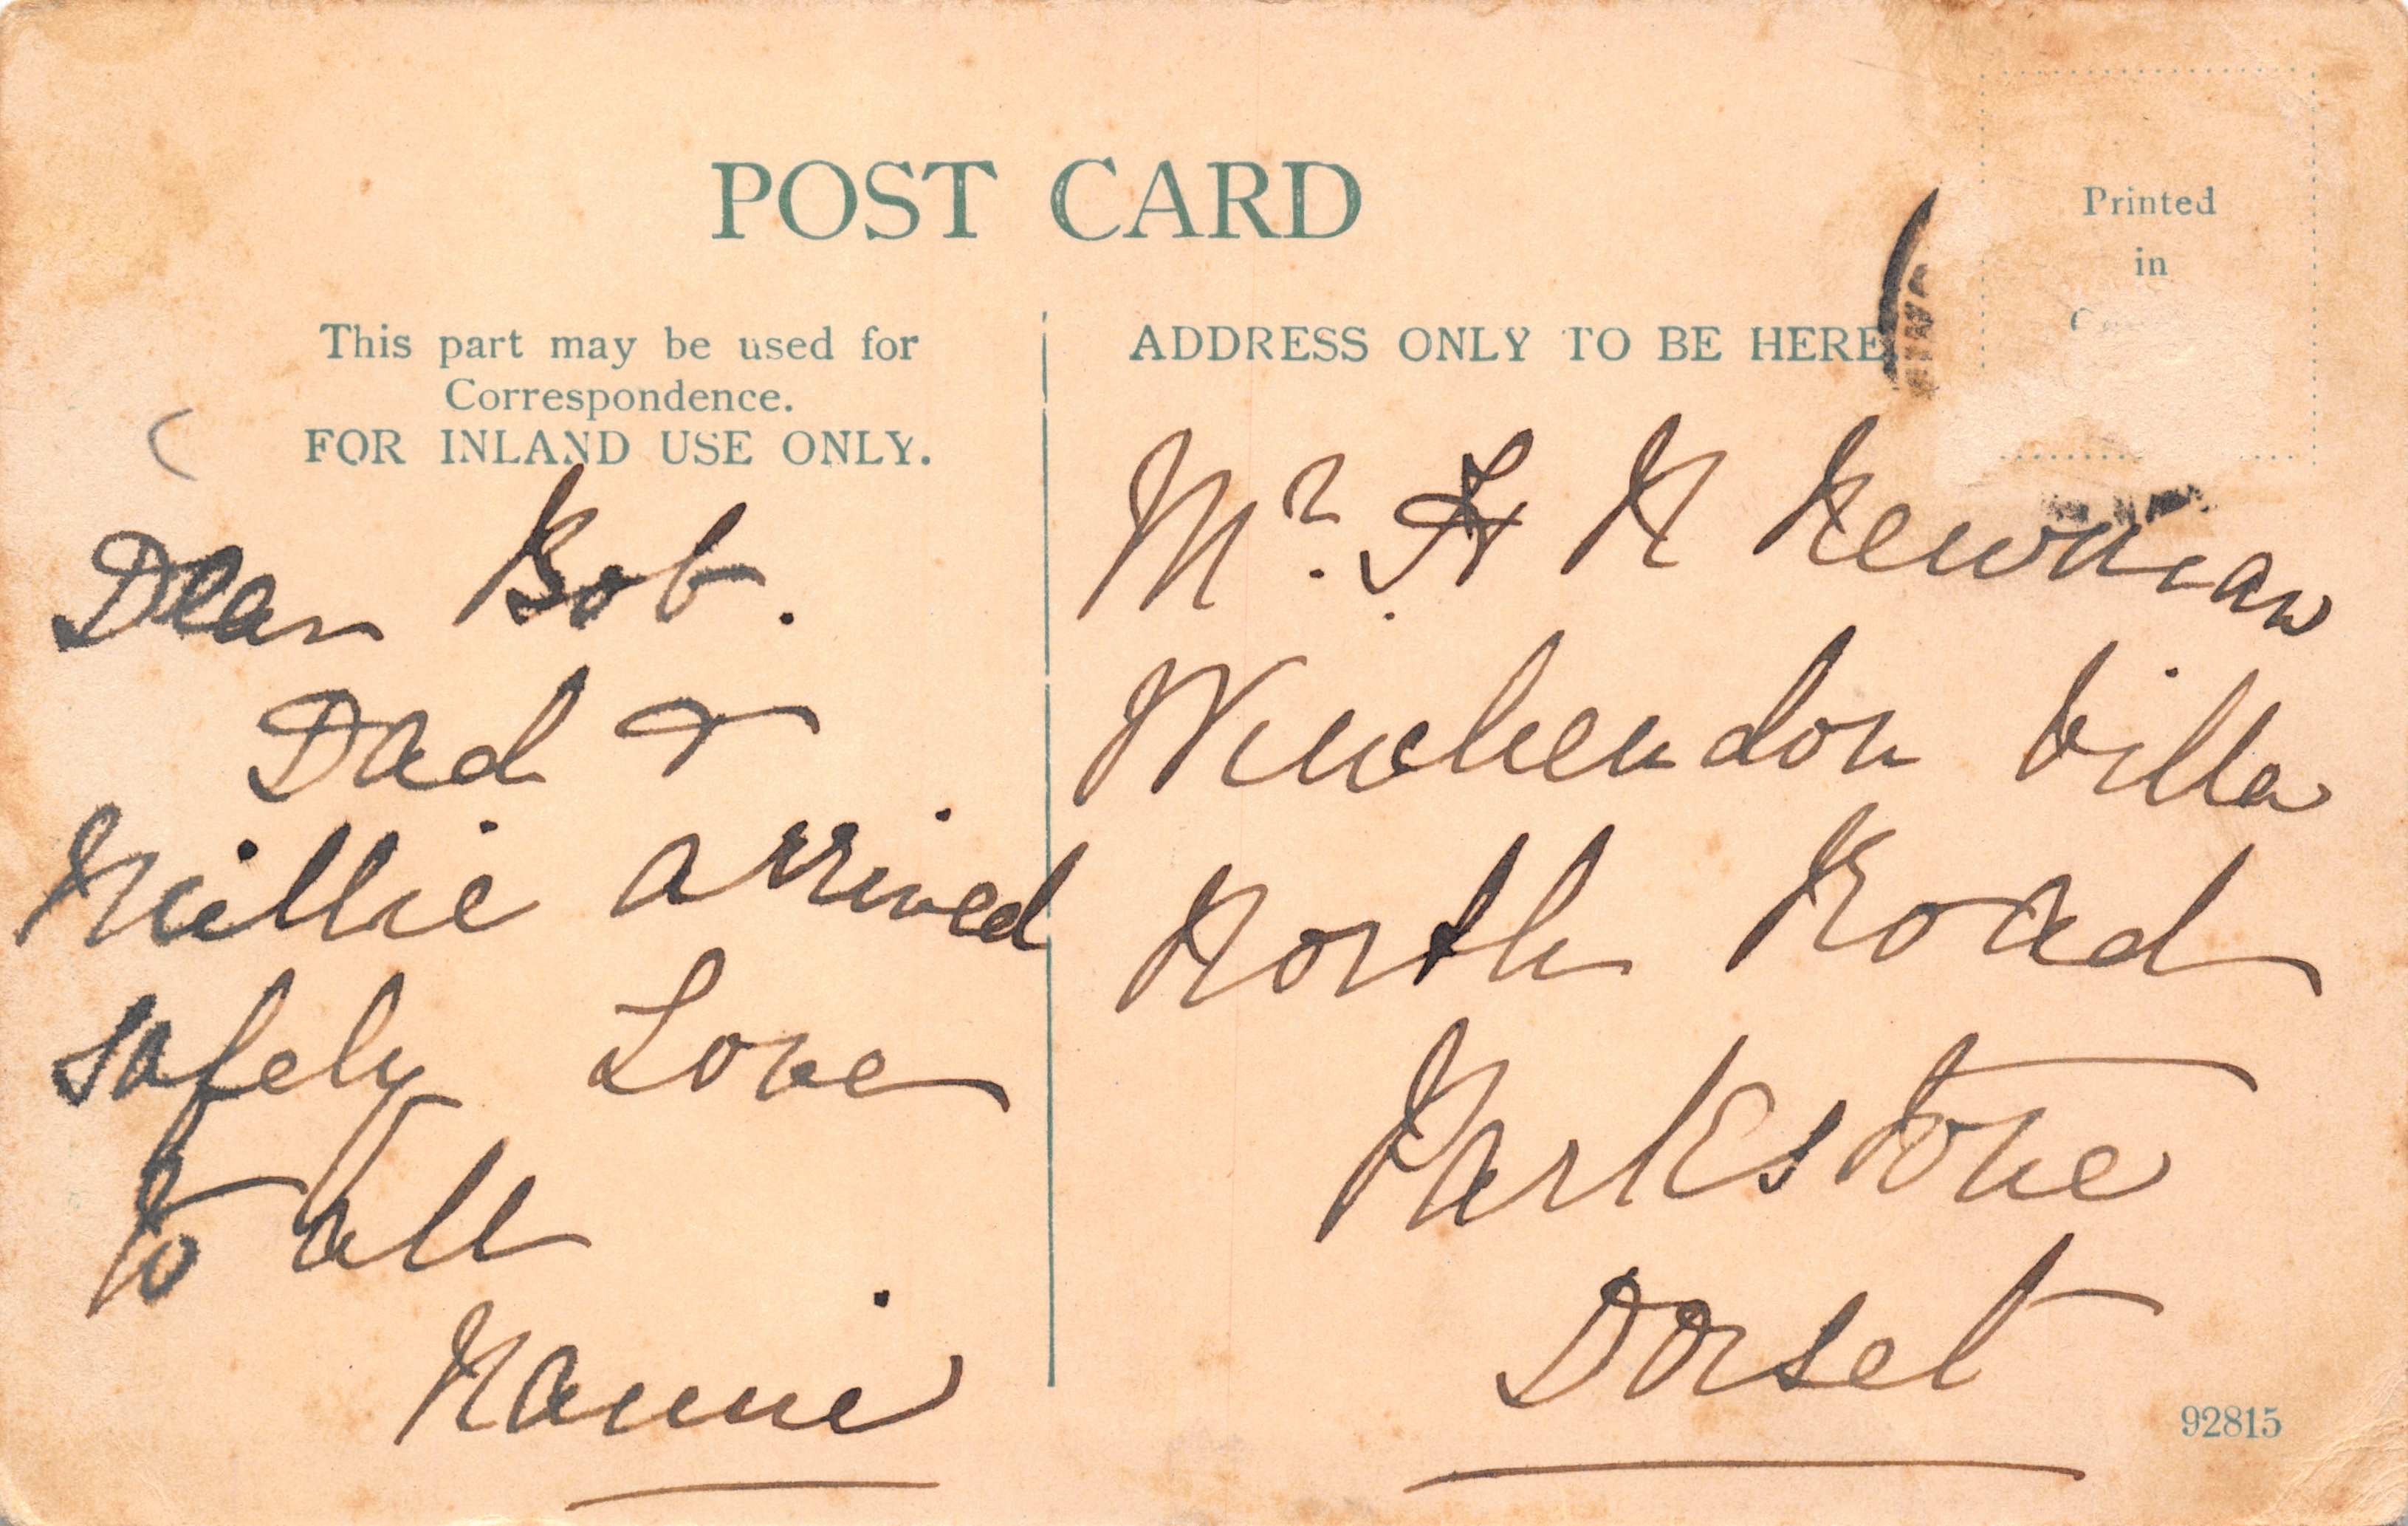 POST CARD
Printed
in
This part may be used for
Correspondence.
FOR INLAND USE ONLY.
ADDRESS ONLY TO BE HERE
Dear Bob.
Dad &
Millie arrived
safely Love
to all
Nannie
Mr. Newman
Villa
North Road
Parkstone
Dorset
92815